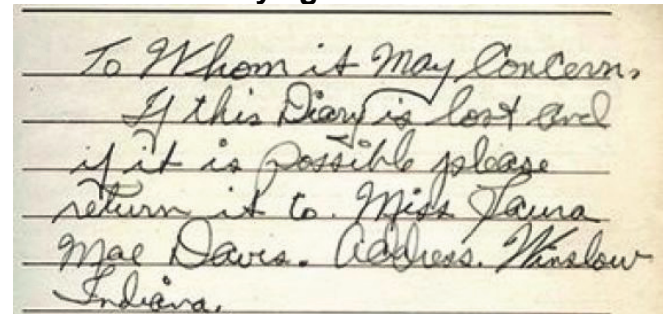 To Whom it May Concern,
If this Diary is lost and
if it is possible please
return it to. Miss Laura
Mae Davis. Address. Winslow
Indiana.